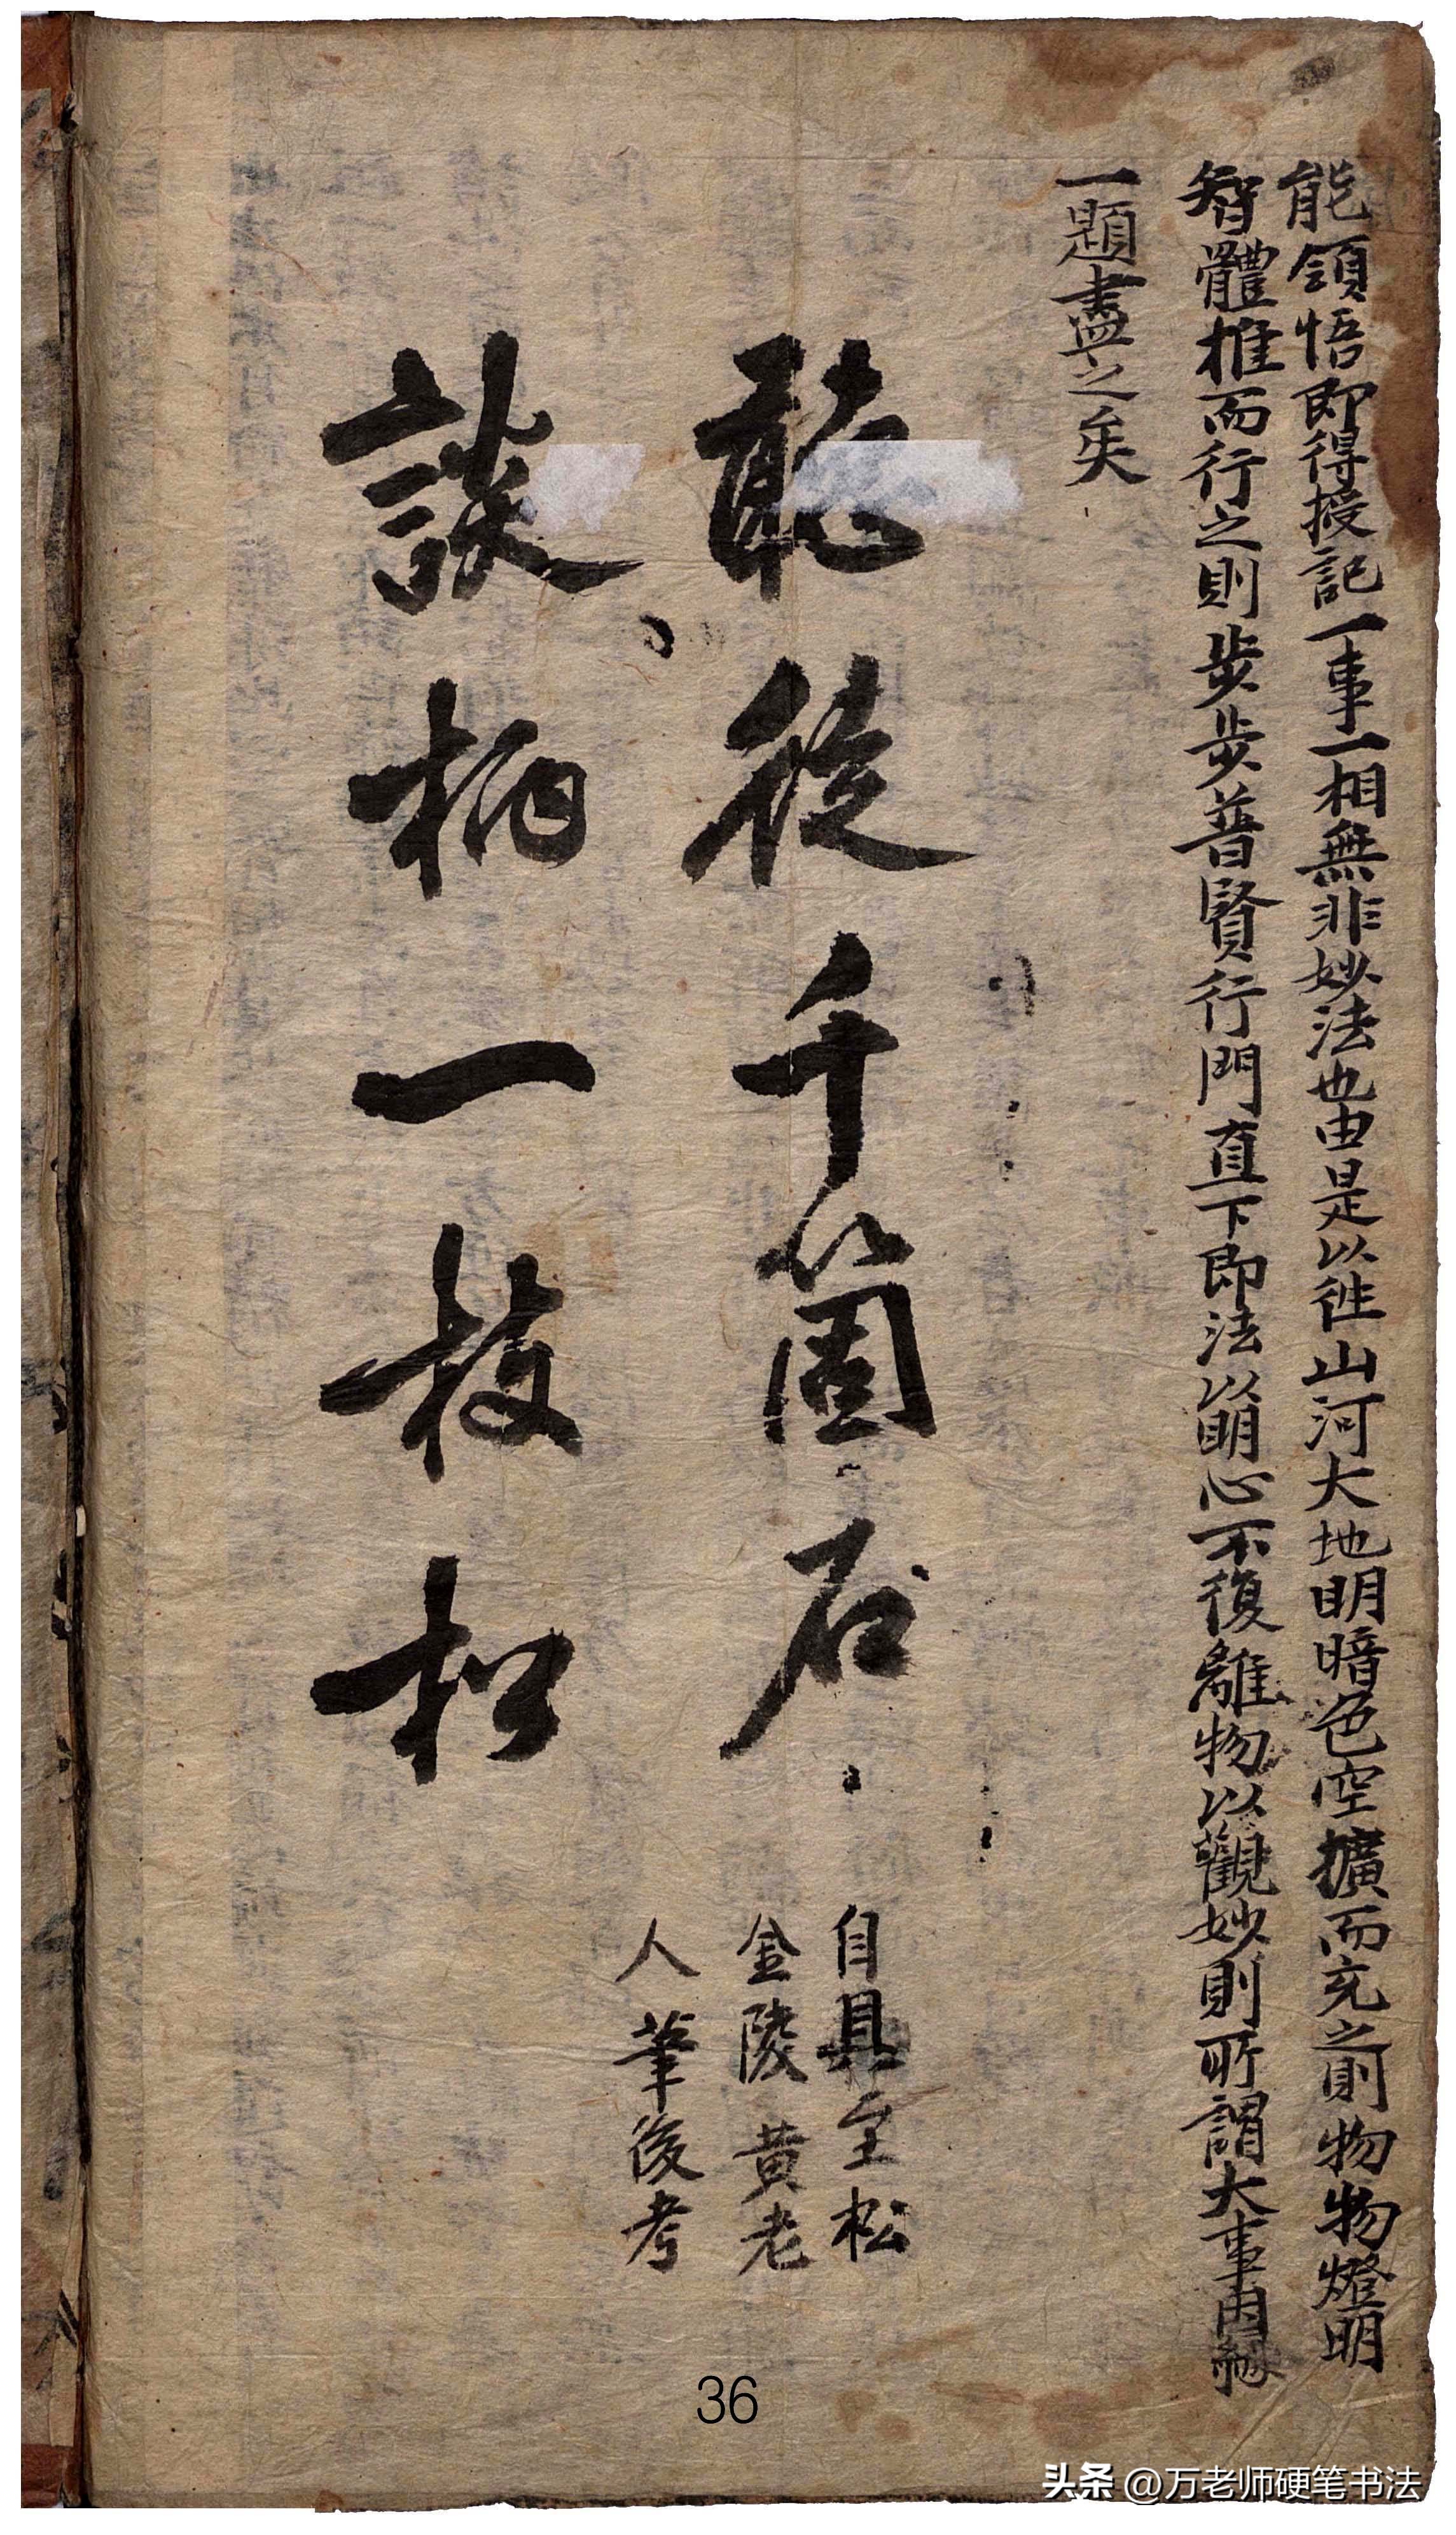 能領悟即得授記一事一相無非妙法也由是以徃山河大地明暗色空擴而充之則物物燈明
智體推而行之則步步普賢行門直下即法以明心不復離物以觀妙則所謂大事因緣
一題盡之矣
聽從千箇石
談柄一枝松
自具全松
金陵黄老
人筆後考
36
头条 @万老师硬笔书法